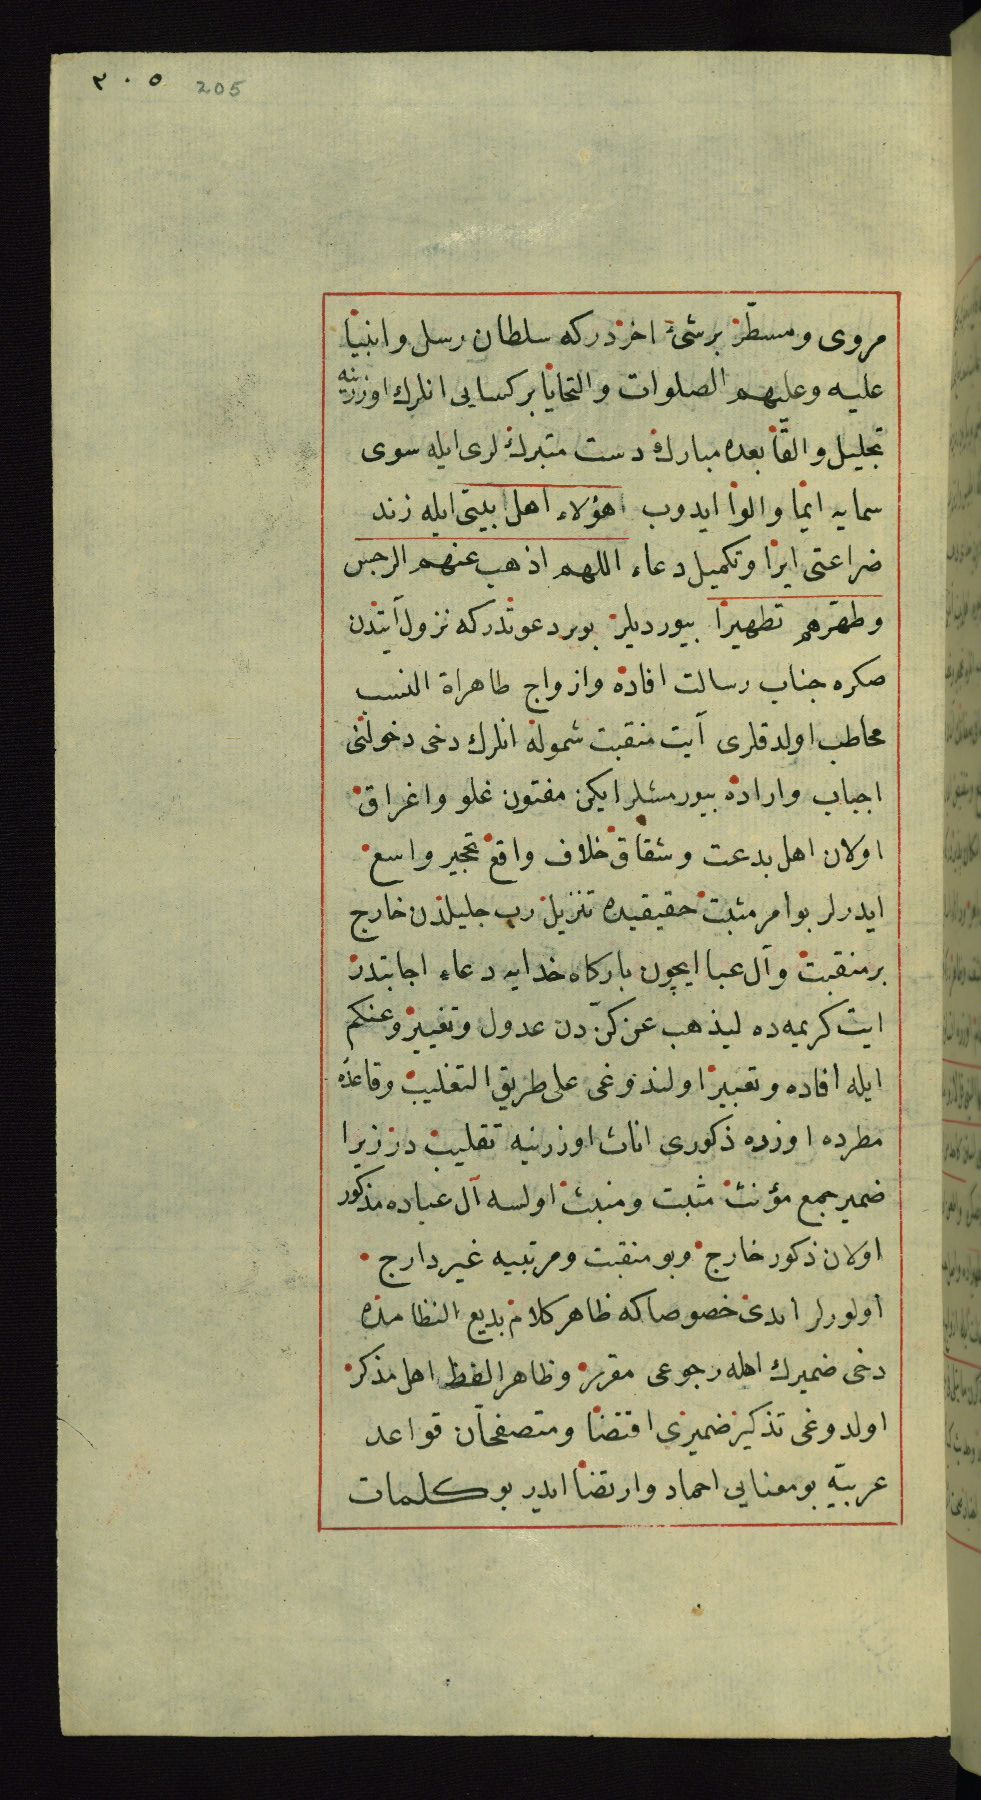 ۲۰۵ 205
مروی و مسطّر برشیٔ اخر درکه سلطان رسل و انبیا
علیه وعلیهم الصلوات والتحایا بر کسایی انلرك اوزرینه
تجلیل و القّا بعده مبارك دست متبرك لری ایله سوی
سمایه ایما و الوا ایدوب اهؤلاء اهل بیتی ایله زند
ضراعتی ایرا و تکمیل دعاء اللهم اذهب عنهم الرجس
وطهّرهم تطهیرا بیوردیلر بو بر دعوتدر که نزول آیتدن
صکره جناب رسالت افاده و ازواج طاهراة النسب
مخاطب اولدقلری آیت منقبت شموله انلرك دخی دخولنی
اجباب و اراده بیورمشلر ایکن مفتون غلو و اغراق
اولان اهل بدعت و شقاق خلاف واقع تحجیر واسع
ایدرلر بو امر مثبت حقیقیده تنزیل رب جلیلدن خارج
بر منقبت و آل عبا ایچون بارکاه خدایه دعاء اجابتدر
ایت کریمه ده لیذهب عن کنّ دن عدول و تغییر و عنکم
ایله افاده و تعبیر اولندوغی علی طریق التغلیب و قاعدهٔ
مطرده اوزره ذکوری اناث اوزرینه تقلیب در زیرا
ضمیر جمع مؤنث مثبت و منبث اولسه آل عباده مذکور
اولان ذکور خارج و بو منقبت و مرتبییه غیر دارج
اولورلر ایدی خصوصا که ظاهر کلام بدیع النظامده
دخی ضمیرك اهله رجوعی مقرر و ظاهرا لفظ اهل مذکر
اولدوغی تذکیر ضمیری اقتضا و متصفحان قواعد
عربیّه بو معنایی احماد و ارتضا ایدر بو کلمات